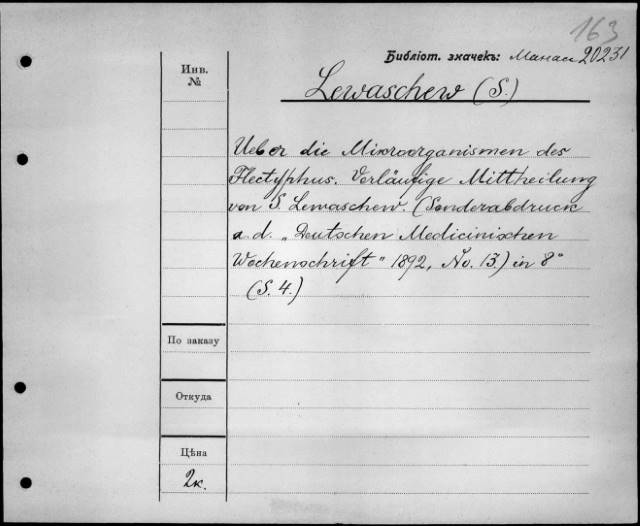 163
Библіот. значекъ: Манас 20231
Инв.
№
Lewaschew (S.)
Ueber die Mikroorganismen des
Flectyphus. Vorläufige Mittheilung
von S. Lewaschew. (Sonderabdruck
a. d. „Deutschen Medicinischen
Wochenschrift" 1892, No. 13.) in 8°
(S. 4.)
По заказу
Откуда
Цѣна
2к.